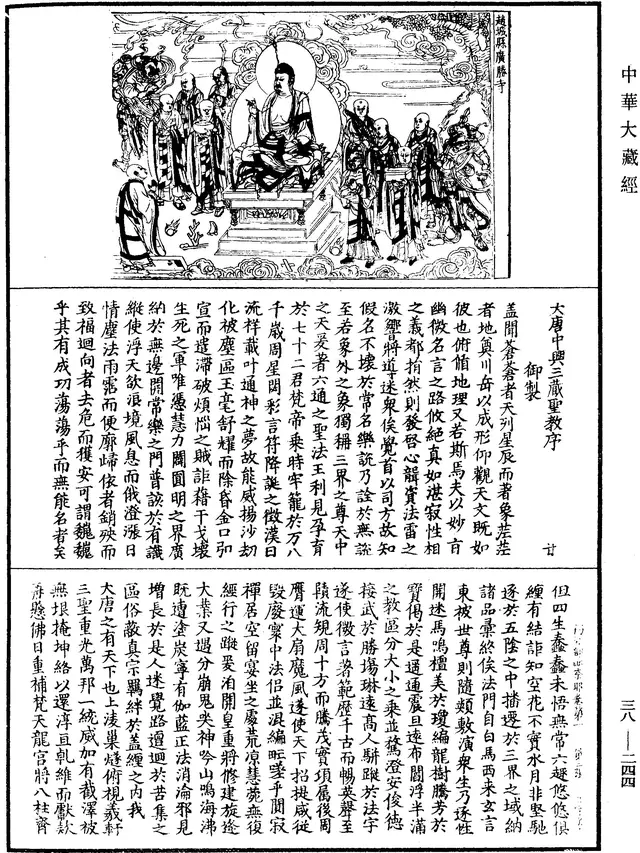 中華大藏經
趙城縣廣勝寺
大唐中興三藏聖教序
御製
蓋聞蒼蒼者天列星辰而著象茫茫
者地奠川岳以成形仰觀天文既如
彼也俯循地理又若斯焉夫以妙旨
幽微名言之路攸絕真如湛寂性相
之義都捐然則發啓心翳資法雷之
激響將導迷衆俟覺首以司方故知
假名不壞於常名樂說乃詮於無說
至若象外之象獨稱三界之尊天中
之天爰著六通之聖法王利見孕育
於七十二君梵帝乘時牢籠於万八
千歲周星閟彩言符降誕之徵漢日
流祥載叶通神之夢故能威揚沙劫
化被塵區玉毫舒耀而除昏金口弘
宣而遣滯破煩惱之賊詎藉干戈壞
生死之軍唯憑慧力闢圓明之界廣
納於無邊開常樂之門普該於有識
縱使浮天欲浪境風息而俄澄漲日
情塵法雨霑而便廓歸依者銷殃而
致福迴向者去危而獲安可謂巍巍
乎其有成功蕩蕩乎而無能名者矣
但四生蠢蠢未悟無常六趣悠悠俱
纏有結詎知空花不實水月非堅馳
逐於五陰之中播遷於三界之域納
諸品彙終俟法門自白馬西來玄言
東被世尊則隨類敷演衆生乃逐性
開迷馬鳴擅美於瓊編龍樹騰芳於
寶偈於是通通震旦遠布閻浮半滿
之教區分大小之乘並驚澄安俊德
接武於勝場琳遠高人駢蹤於法宇
遂使微言著範歷千古而暢英聲至
賾流規周十方而騰茂實項属後周
膺運大扇魔風遂使天下招提咸從
毀廢寰中法侶並混編甿墜于閒寂
禪居空留宴坐之處荒凉慧菀無復
經行之蹤爰洎開皇重將修建旋逢
大業又遇分崩鬼哭神吟山鳴海沸
既遭塗炭寧有伽藍正法消淪邪見
增長於是人迷覺路邅迴於苦集之
區俗蔽真宗羈絆於蓋纏之內我
大唐之有天下也上淩巢燧俯視羲軒
三聖重光萬邦一統威加有截澤被
無垠掩坤絡以還淳亘乹維而獻款
再懸佛日重補梵天龍宮將八柱齊
三八—二四四